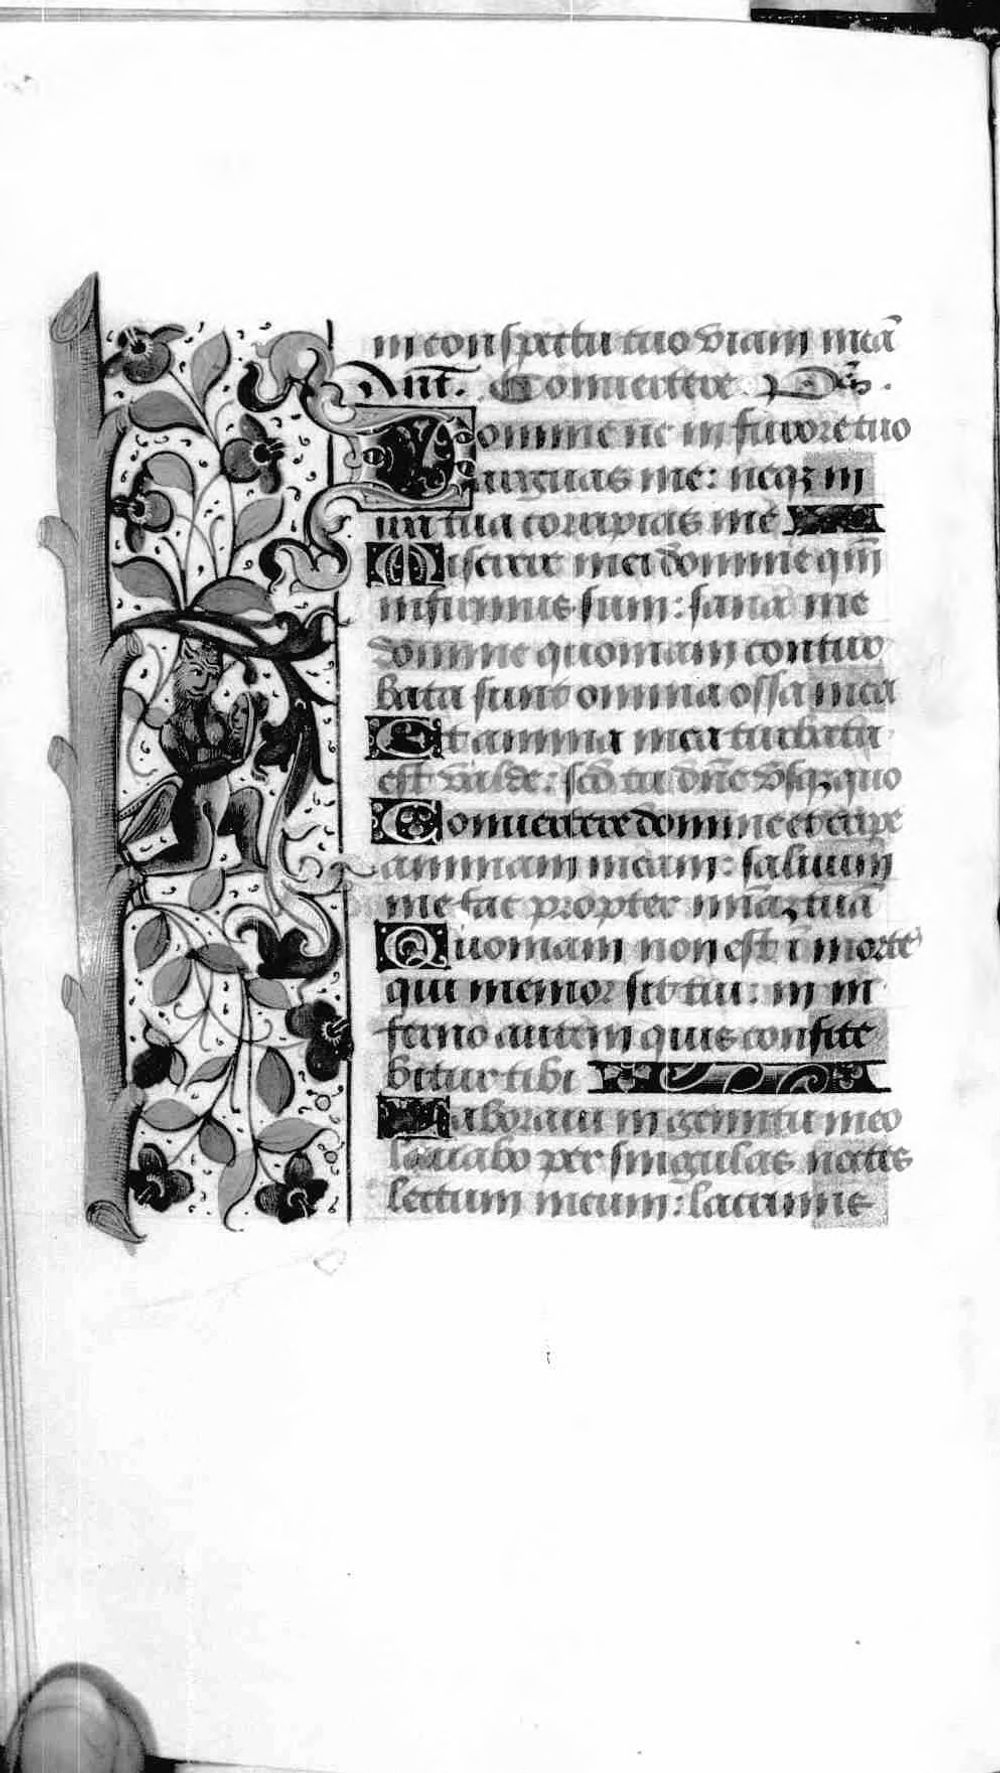 in conspectu tuo viam meā
Ant. Conuertere. p̄s.
Domine ne in furore tuo
arguas me: neqꝫ in
ira tua corripias me
Miserere mei domine qm̄
infirmus sum: sana me
domine quoniam contur
bata sunt omnia ossa mea
Et anima mea turbata
est valde: sed tu dn̄e vsqꝫ quo
Conuertere domine et eripe
animam meam: saluum
me fac propter mi͞amꝫ tuā
Quoniam non est ī morte
qui memor sit tui: in in
ferno autem quis confite
bitur tibi
Laboraui in gemitu meo
lauabo per singulas noctes
lectum meum: lacrimis